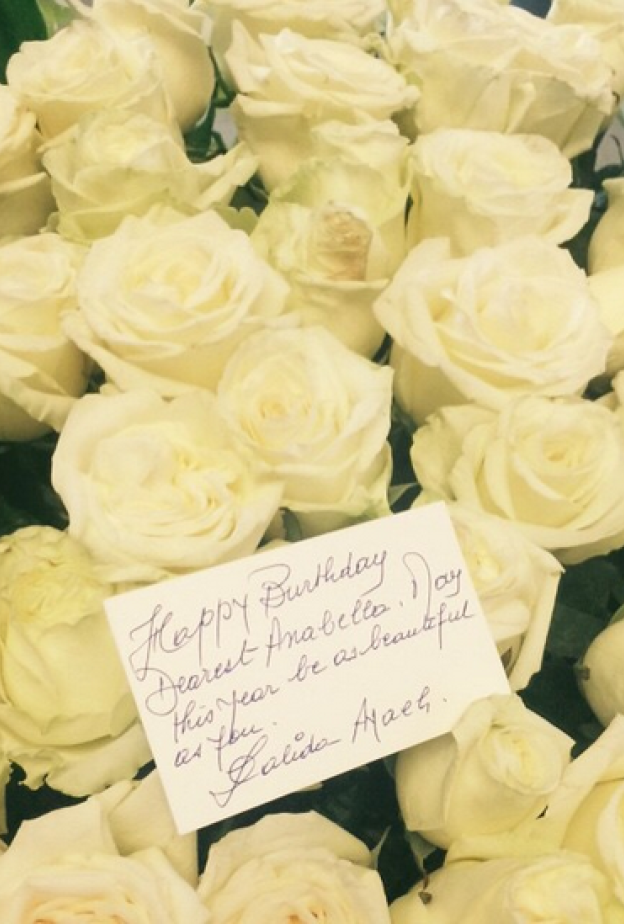 Happy Burthday
Dearest Anabella. May
this year be as beautiful
as you.
Dalida Ayach.